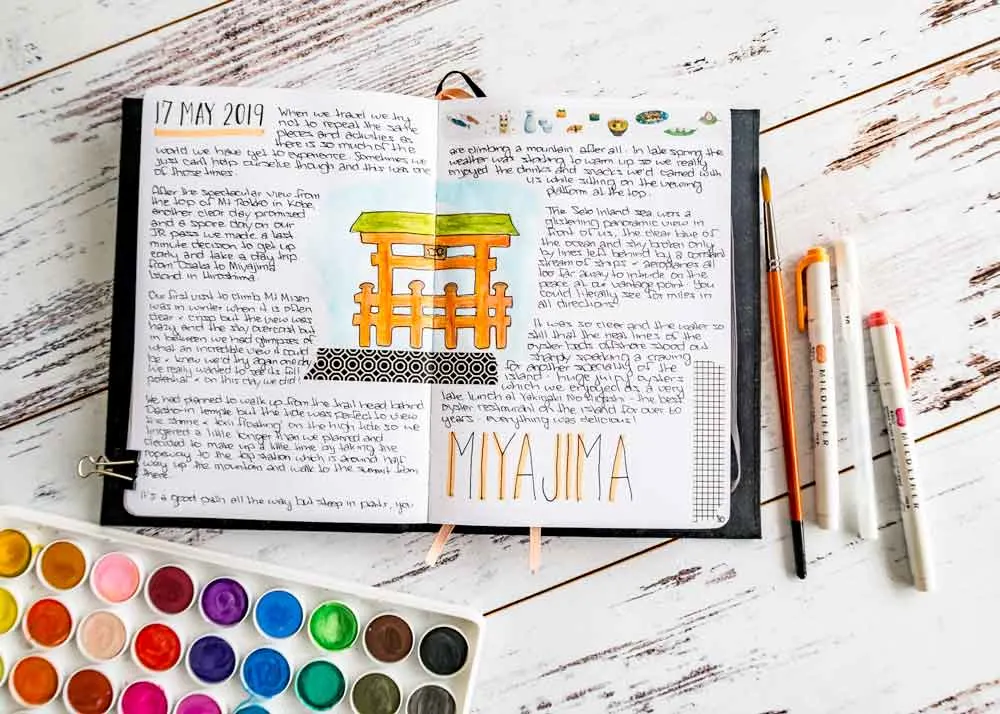 17 MAY 2019
When we travel we try
not to repeat the same
places and activities as
there is so much of the
world we have yet to experience. Sometimes we
just can't help ourselves though and this was one
of those times.
After the spectacular view from
the top of Mt Rokko in Kobe
another clear day promised
and a spare day on our
JR pass we made a last
minute decision to get up
early and take a day trip
from Osaka to Miyajima
Island in Hiroshima.
Our first visit to climb Mt Misen
was in winter when it is often
clear + crisp but the view was
hazy and the sky overcast but
in between we had glimpses of
what an incredible view it could
be + knew we'd try again one day
We really wanted to see its full
potential + on this day we did!
We had planned to walk up from the trail head behind
Daisho-in temple but the tide was perfect to view
the shrine + torii 'floating' on the high tide so we
lingered a little longer than we planned and
decided to make up a little time by taking the
ropeway to the top station which is around half
way up the mountain and walk to the summit from
there.
It's a good path all the way but steep in parts, you
are climbing a mountain after all. In late spring the
weather was starting to warm up so we really
enjoyed the drinks and snacks we'd carried with
us while sitting on the viewing
platform at the top.
The Seto Inland sea was a
glistening panoramic view in
front of us, the clear blue of
the ocean and sky broken only
by lines left behind by a constant
stream of ships + aeroplanes all
too far away to intrude on the
peace at our vantage point. You
could literally see for miles in
all directions!
It was so clear and the water so
still that the neat lines of the
oyster beds offshore stood out
sharply sparking a craving
for another specialty of the
island - huge juicy oysters
which we enjoyed as a very
late lunch at Yakigaki No Hayashi - the best
oyster restaurant on the island for over 60
years - everything was delicious!
MIYAJIMA
MILDLINER
MILDLINER